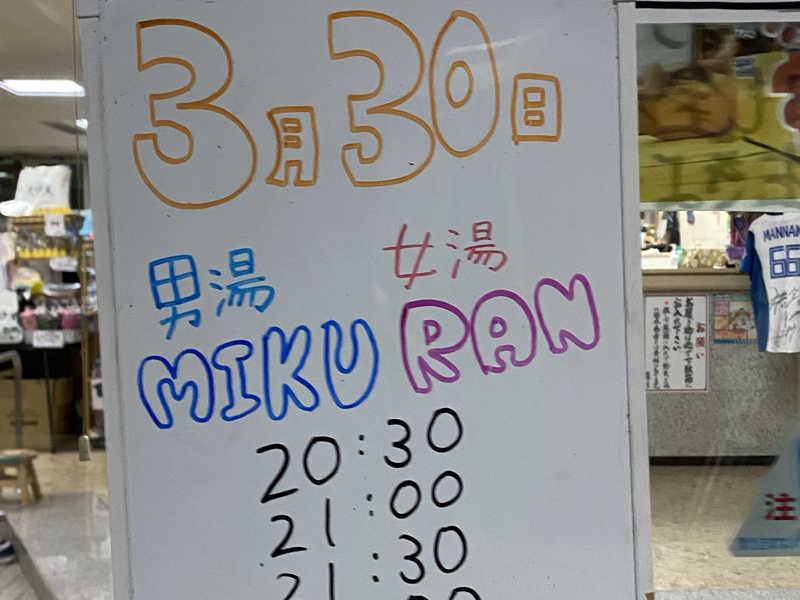 3月30日
男湯 女湯
MIKU RAN
20:30
21:00
21:30
MANNAM
66
お願い
注